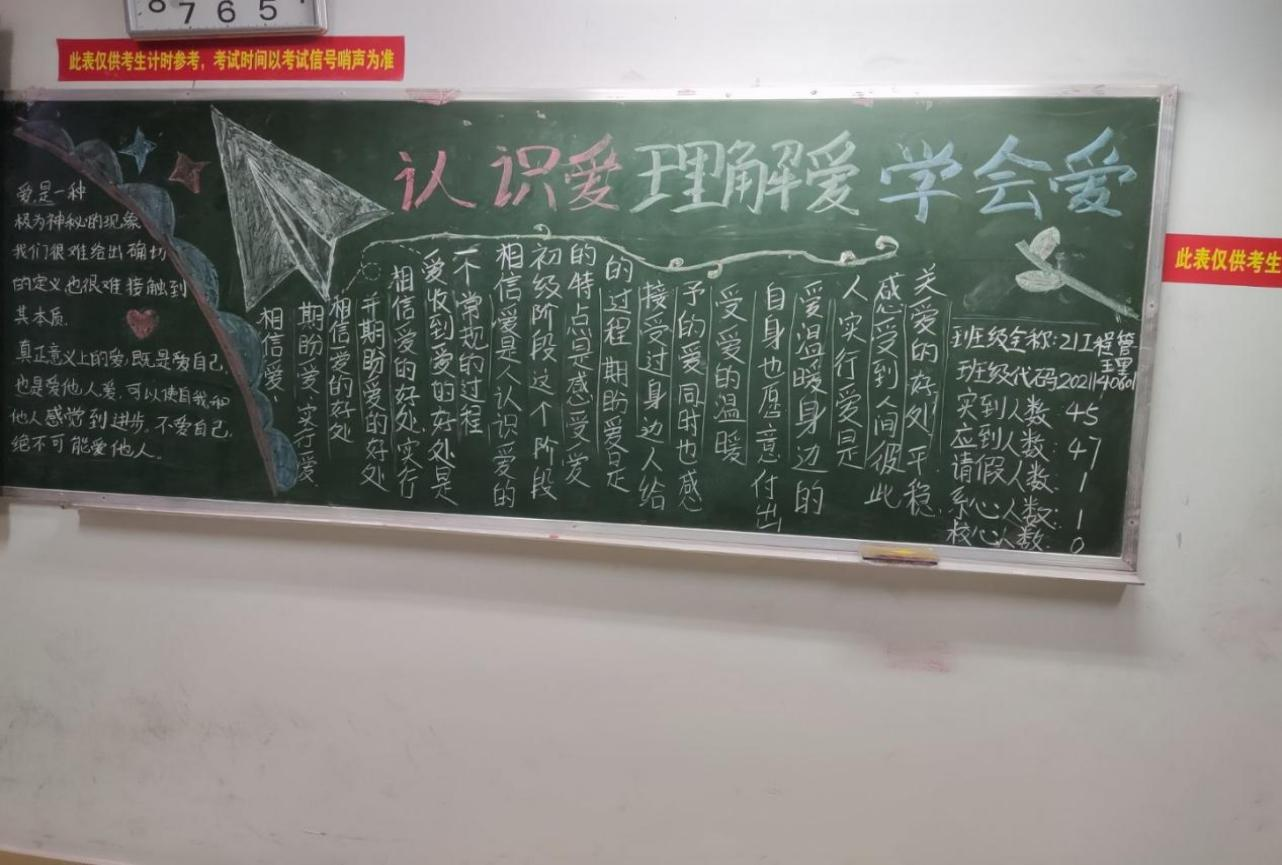 8 7 6 5
此表仅供考生计时参考，考试时间以考试信号哨声为准
此表仅供考生
认识爱 理解爱 学会爱
爱是一种
极为神秘的现象
我们很难给出确切
的定义也很难接触到
其本质.
真正意义上的爱,既是爱自己,
也是爱他人爱,可以使自我和
他人感觉到进步,不爱自己,
绝不可能爱他人.
相信爱、
期盼爱、实行爱、
相信爱的好处
并期盼爱的好处
相信爱的好处、实行
爱收到爱的好处是
一个常规的过程
相信爱是人认识爱的
初级阶段这个阶段
的特点是感受爱
的过程期盼爱是
接受过身边人给
予的爱同时也感
受爱的温暖
自身也愿意付出
爱温暖身边的
人实行爱是
感受到人间彼此
关爱的好处、平稳
班级全称:21工程管理
班级代码2021140601
实到人数:45
应到人数:47
请假人数:1
系心人数:1
核心人数:0